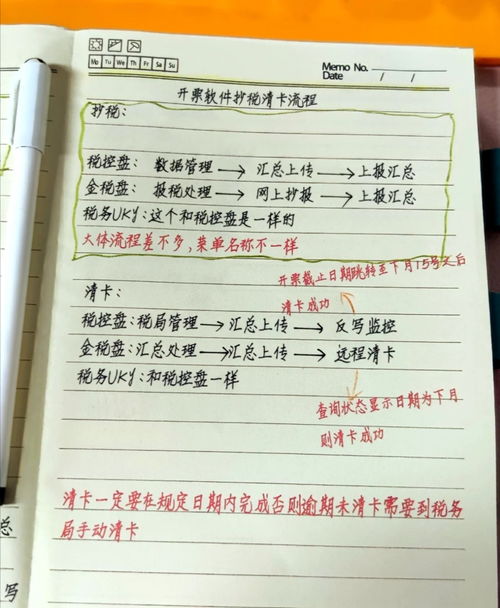 Mo Tu We Th Fr Sa Su
Memo No.
Date / /
开票软件抄税清卡流程
抄税:
税控盘: 数据管理 → 汇总上传 → 上报汇总
金税盘: 报税处理 → 网上抄报 → 上报汇总
税务UKY:这个和税控盘是一样的
大体流程差不多,菜单名称不一样
开票截止日期跳转至下月15号之后
清卡成功
清卡:
税控盘:税局管理 → 汇总上传 → 反写监控
金税盘:汇总处理 → 汇总上传 → 远程清卡
税务UKY:和税控盘一样
查询状态显示日期为下月
则清卡成功
清卡一定要在规定日期内完成否则逾期未清卡需要到税务
局手动清卡
总
写